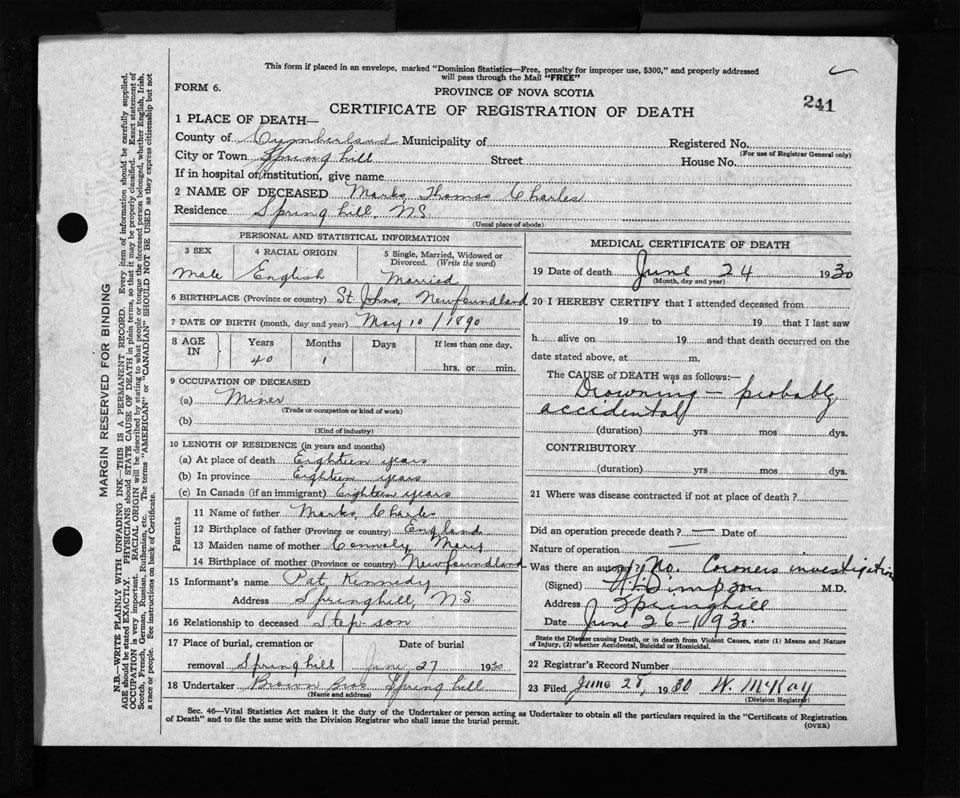 This form if placed in an envelope, marked "Dominion Statistics—Free, penalty for improper use, $300," and properly addressed
will pass through the Mail "FREE"
FORM 6.
PROVINCE OF NOVA SCOTIA
241
CERTIFICATE OF REGISTRATION OF DEATH
1 PLACE OF DEATH—
County of Cumberland Municipality of Registered No.
(For use of Registrar General only)
City or Town Springhill Street House No.
If in hospital or institution, give name
2 NAME OF DECEASED Marks Thomas Charles
Residence Springhill, N.S.
(Usual place of abode)
PERSONAL AND STATISTICAL INFORMATION
3 SEX 4 RACIAL ORIGIN 5 Single, Married, Widowed or
Divorced. (Write the word)
Male English Married
6 BIRTHPLACE (Province or country) St. Johns, Newfoundland
7 DATE OF BIRTH (month, day and year) May 10 / 1890
8 AGE IN Years Months Days If less than one day,
40 1 hrs. or min.
9 OCCUPATION OF DECEASED
(a) Miner
(Trade or occupation or kind of work)
(b)
(Kind of industry)
10 LENGTH OF RESIDENCE (in years and months)
(a) At place of death Eighteen years
(b) In province Eighteen years
(c) In Canada (if an immigrant) Eighteen years
Parents
11 Name of father Marks, Charles
12 Birthplace of father (Province or country) England
13 Maiden name of mother Connoly, Mary
14 Birthplace of mother (Province or country) Newfoundland
15 Informant's name Pat. Kennedy
Address Springhill, N.S.
16 Relationship to deceased Step-son
17 Place of burial, cremation or Date of burial
removal Springhill June 27 1930
18 Undertaker Brown Bros Springhill
(Name and address)
MEDICAL CERTIFICATE OF DEATH
19 Date of death June 24 1930
(Month, day and year)
20 I HEREBY CERTIFY that I attended deceased from
19 to 19 that I last saw
h alive on 19 and that death occurred on the
date stated above, at m.
The CAUSE of DEATH was as follows:—
Drowning — probably
accidental
(duration) yrs mos dys.
CONTRIBUTORY
(duration) yrs mos dys.
21 Where was disease contracted if not at place of death?
Did an operation precede death? — Date of
Nature of operation —
Was there an autopsy? No. Coroners investigation
(Signed) Simpson M.D.
Address Springhill
Date June 26-1930.
State the Disease causing Death, or in death from Violent Causes, state (1) Means and Nature
of Injury, (2) whether Accidental, Suicidal or Homicidal.
22 Registrar's Record Number
23 Filed June 28, 1930 W. McKay
(Division Registrar)
Sec. 46—Vital Statistics Act makes it the duty of the Undertaker or person acting as Undertaker to obtain all the particulars required in the "Certificate of Registration
of Death" and to file the same with the Division Registrar who shall issue the burial permit.
(OVER)
MARGIN RESERVED FOR BINDING
N.B.—WRITE PLAINLY WITH UNFADING INK—THIS IS A PERMANENT RECORD. Every item of information should be carefully supplied.
AGE should be stated EXACTLY. PHYSICIANS should STATE CAUSE OF DEATH in plain terms, so that it may be properly classified. Exact statement of
OCCUPATION is very important. RACIAL ORIGIN will be described by stating to what people or tongue the deceased person belonged, whether English, Irish,
Scotch, French, German, Russian, Ruthenian, etc. The terms "AMERICAN" or "CANADIAN" SHOULD NOT BE USED as they express citizenship but not
a race or people. See instructions on back of Certificate.